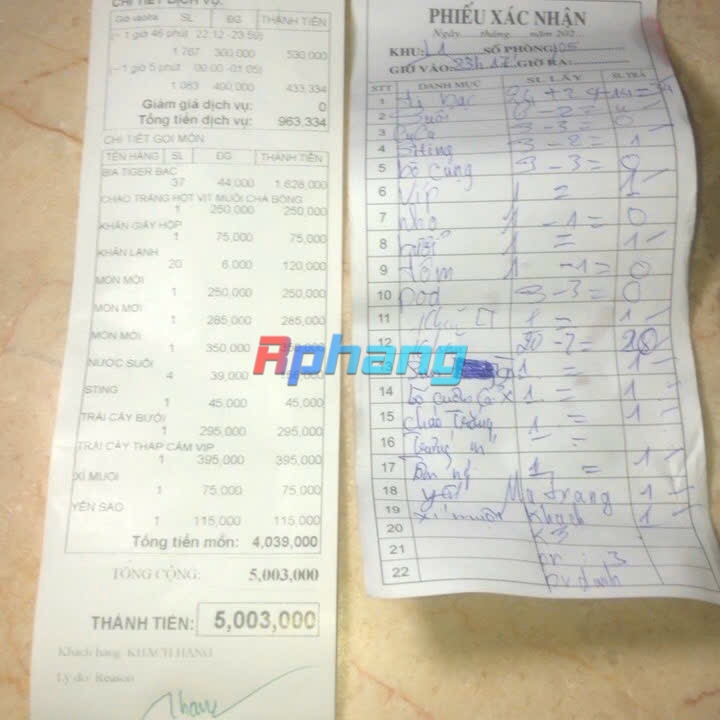 CHI TIẾT DỊCH VỤ:
Giờ vào/ra SL ĐG THÀNH TIỀN
(~ 1 giờ 46 phút 22:12 -23:59)
1.767 300,000 530,000
(~ 1 giờ 5 phút 00:00 -01:05)
1.083 400,000 433,334
Giảm giá dịch vụ: 0
Tổng tiền dịch vụ: 963,334
CHI TIẾT GỌI MÓN:
TÊN HÀNG SL ĐG THÀNH TIỀN
BIA TIGER BẠC
37 44,000 1,628,000
CHÁO TRẮNG HỘT VỊT MUỐI CHÀ BÔNG
1 250,000 250,000
KHĂN GIẤY HỘP
1 75,000 75,000
KHĂN LẠNH
20 6,000 120,000
MÓN MỚI
1 250,000 250,000
MÓN MỚI
1 285,000 285,000
MÓN MỚI
1 350,000
NƯỚC SUỐI
4 39,000
STING
1 45,000 45,000
TRÁI CÂY BƯỞI
1 295,000 295,000
TRÁI CÂY THẬP CẨM VIP
1 395,000 395,000
XÍ MUỘI
1 75,000 75,000
YẾN SÀO
1 115,000 115,000
Tổng tiền món: 4,039,000
TỔNG CỘNG: 5,003,000
THÀNH TIỀN: 5,003,000
Khách hàng: KHÁCH HÀNG
Lý do/ Reason
Rphang
PHIẾU XÁC NHẬN
Ngày......tháng......năm 202...
KHU: L1 SỐ PHÒNG: 105
GIỜ VÀO: 23h GIỜ RA:
STT DANH MỤC SL LẤY SL TRẢ
1 bạc 24 +
2 Suối 6 - 2 = 4
3 3 - 3 = 0
4 Sting 3 - 2 = 1
5 bò cụng 3 - 3 = 0
6 Vip 1 = 1
7 nho 1 - 1 = 0
8 bưởi 1 = 1
9 tôm 1 - 1 = 0
10 pod 3 - 3 = 0
11 1 = 1
12 20 - ? = 20
13 1 = 1
14 bò cuốn 1 = 1
15 cháo trắng 1 = 1
16
17 1 = 1
18 yến Nha trang 1
19 xí muội khách 1
20 k3
21 pv : 3
22 pv danh